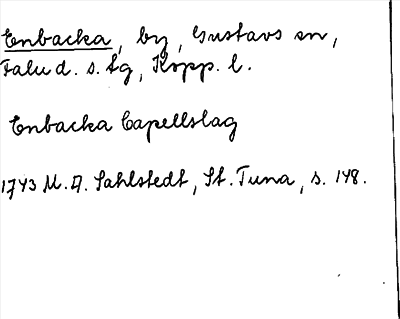 Enbacka, by, Gustavs sn,
Falu d. s. lg, Kopp. l.
Enbacka Capellslag
1743 M. A. Sahlstedt, St. Tuna, s. 148.